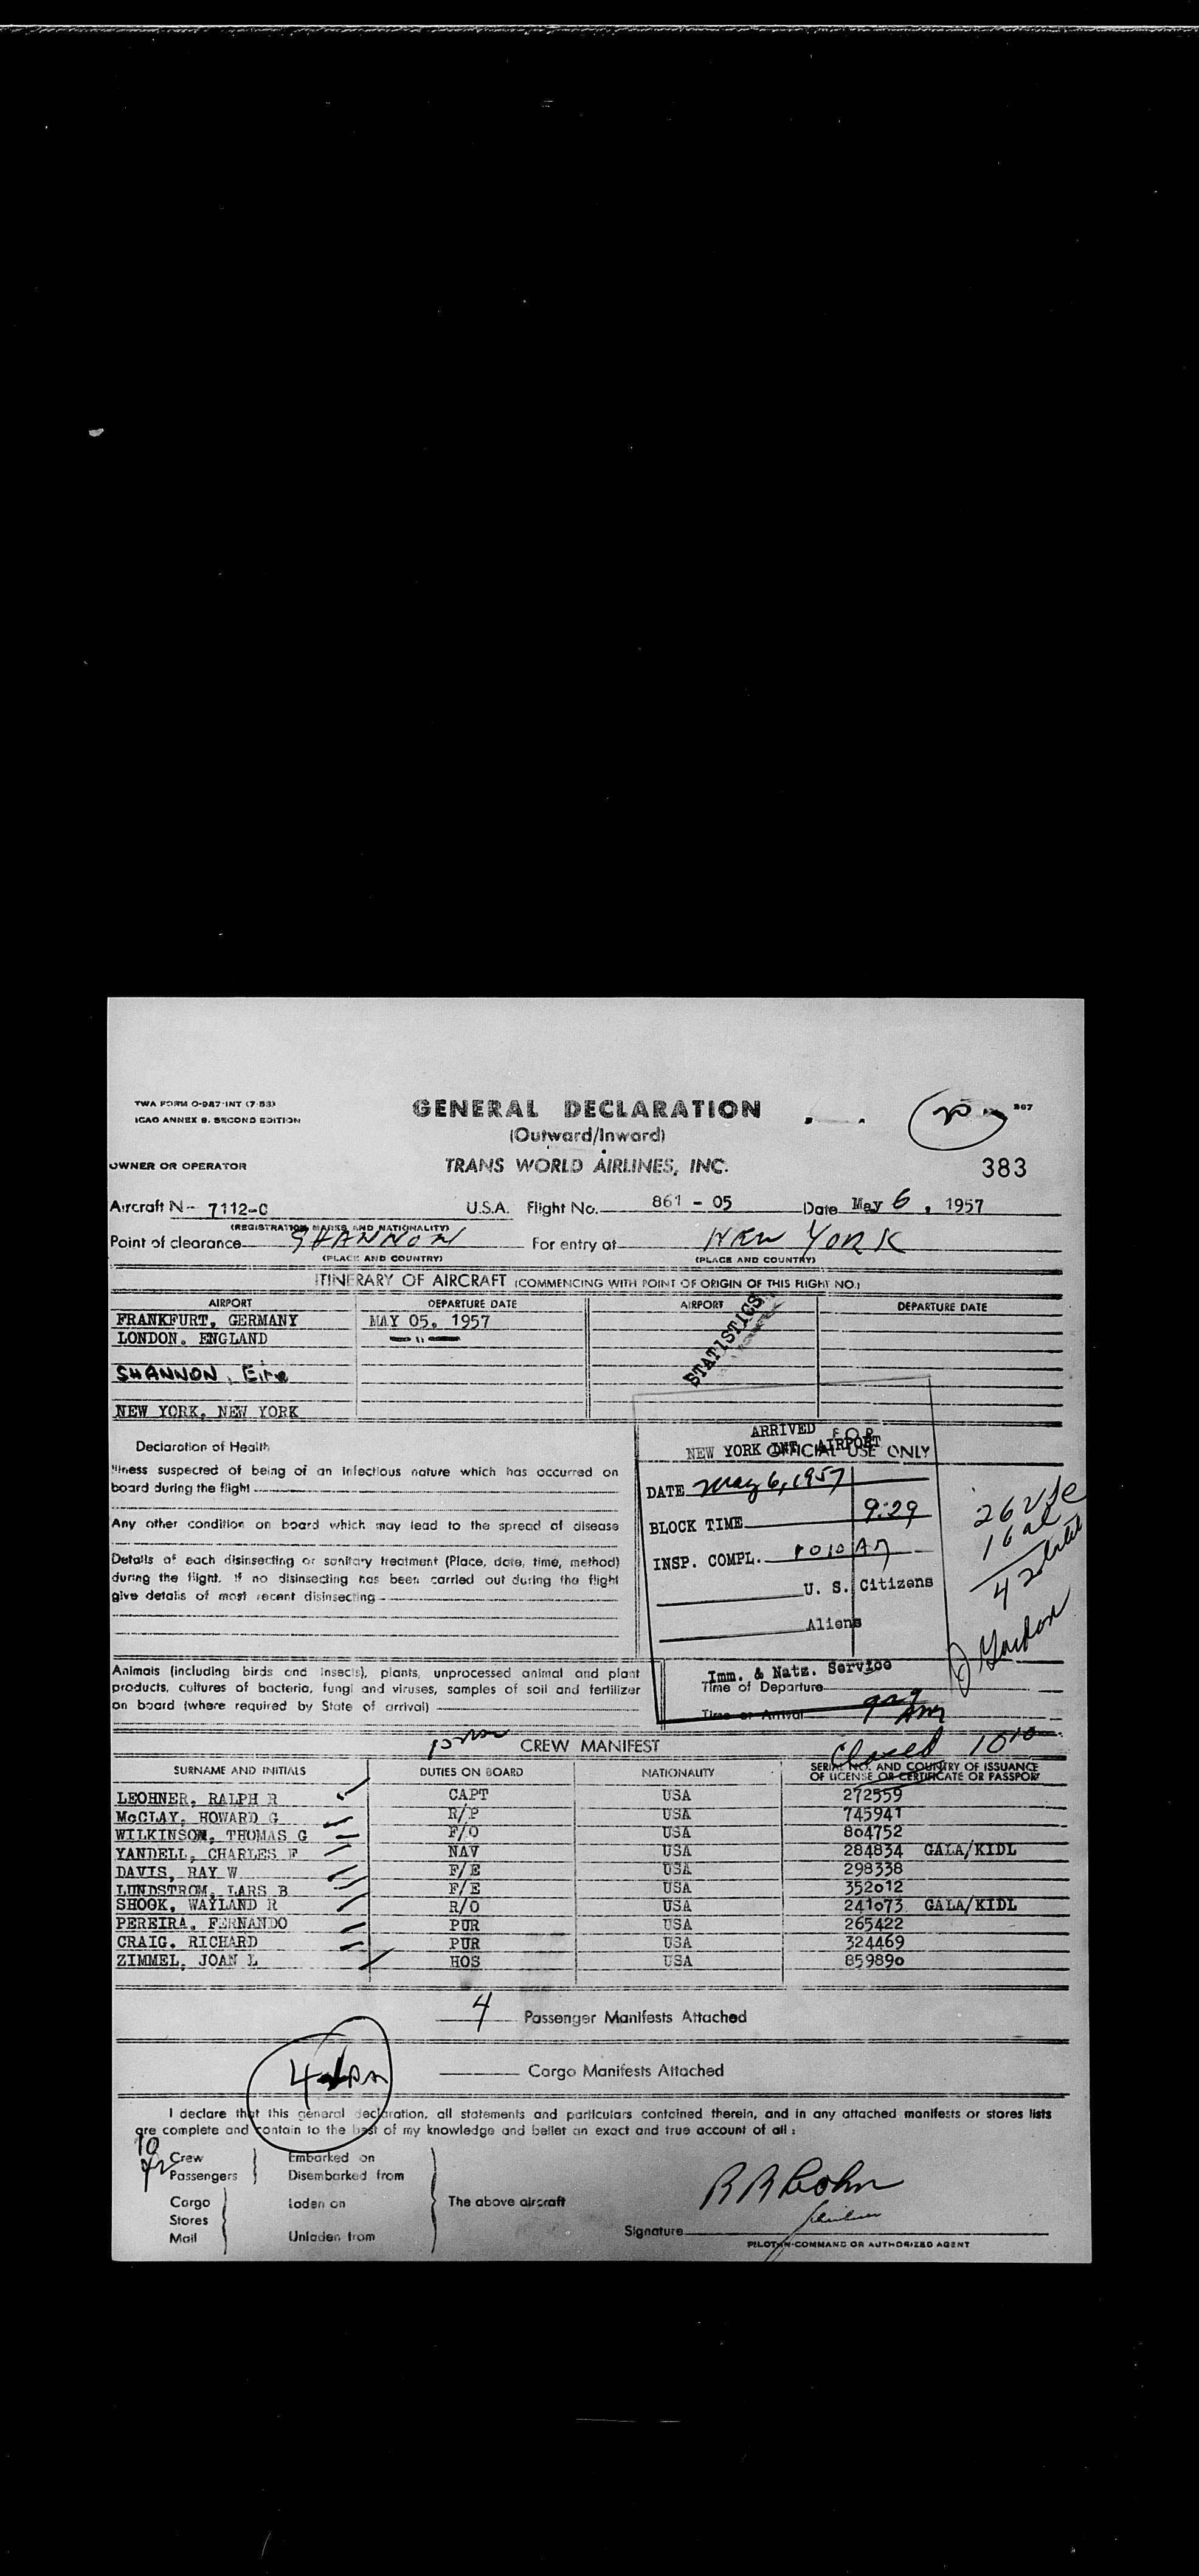 TWA FORM O-987-INT (7-53)
ICAO ANNEX 9, SECOND EDITION
GENERAL DECLARATION
(Outward/Inward)
207
OWNER OR OPERATOR
TRANS WORLD AIRLINES, INC.
383
Aircraft N- 7112-C U.S.A. Flight No. 861 - 05 Date May 6, 1957
(REGISTRATION MARKS AND NATIONALITY)
Point of clearance SHANNON For entry at NEW YORK
(PLACE AND COUNTRY) (PLACE AND COUNTRY)
ITINERARY OF AIRCRAFT (COMMENCING WITH POINT OF ORIGIN OF THIS FLIGHT NO.)
AIRPORT DEPARTURE DATE AIRPORT DEPARTURE DATE
FRANKFURT, GERMANY MAY 05, 1957
LONDON, ENGLAND —"—
STATISTICS
SHANNON, Eire
NEW YORK, NEW YORK
Declaration of Health
Illness suspected of being of an infectious nature which has occurred on
board during the flight
Any other condition on board which may lead to the spread of disease
Details of each disinsecting or sanitary treatment (Place, date, time, method)
during the flight. If no disinsecting has been carried out during the flight
give details of most recent disinsecting
ARRIVED
NEW YORK INT. AIRPORT
FOR
OFFICIAL USE ONLY
DATE May 6, 1957
BLOCK TIME 9:29
INSP. COMPL. 1010 AM
U. S. Citizens
Aliens
Imm. & Natz. Service
26 USC
16 al
42 total
J Gordon
Animals (including birds and insects), plants, unprocessed animal and plant
products, cultures of bacteria, fungi and viruses, samples of soil and fertilizer
on board (where required by State of arrival)
Time of Departure
Time of Arrival 929 AM
Closed 1010
CREW MANIFEST
SURNAME AND INITIALS DUTIES ON BOARD NATIONALITY SERIAL NO. AND COUNTRY OF ISSUANCE
OF LICENSE OR CERTIFICATE OR PASSPORT
LEOHNER, RALPH R CAPT USA 272559
McCLAY, HOWARD G R/P USA 745941
WILKINSON, THOMAS G F/O USA 804752
YANDELL, CHARLES F NAV USA 284834 GALA/KIDL
DAVIS, RAY W F/E USA 298338
LUNDSTROM, LARS B F/E USA 352012
SHOOK, WAYLAND R R/O USA 241073 GALA/KIDL
PEREIRA, FERNANDO PUR USA 265422
CRAIG, RICHARD PUR USA 324469
ZIMMEL, JOAN L HOS USA 859890
4 Passenger Manifests Attached
Cargo Manifests Attached
I declare that this general declaration, all statements and particulars contained therein, and in any attached manifests or stores lists
are complete and contain to the best of my knowledge and belief an exact and true account of all:
10 Crew Embarked on
42 Passengers Disembarked from
Cargo Laden on The above aircraft
Stores
Mail Unladen from
Signature
PILOT-IN-COMMAND OR AUTHORIZED AGENT